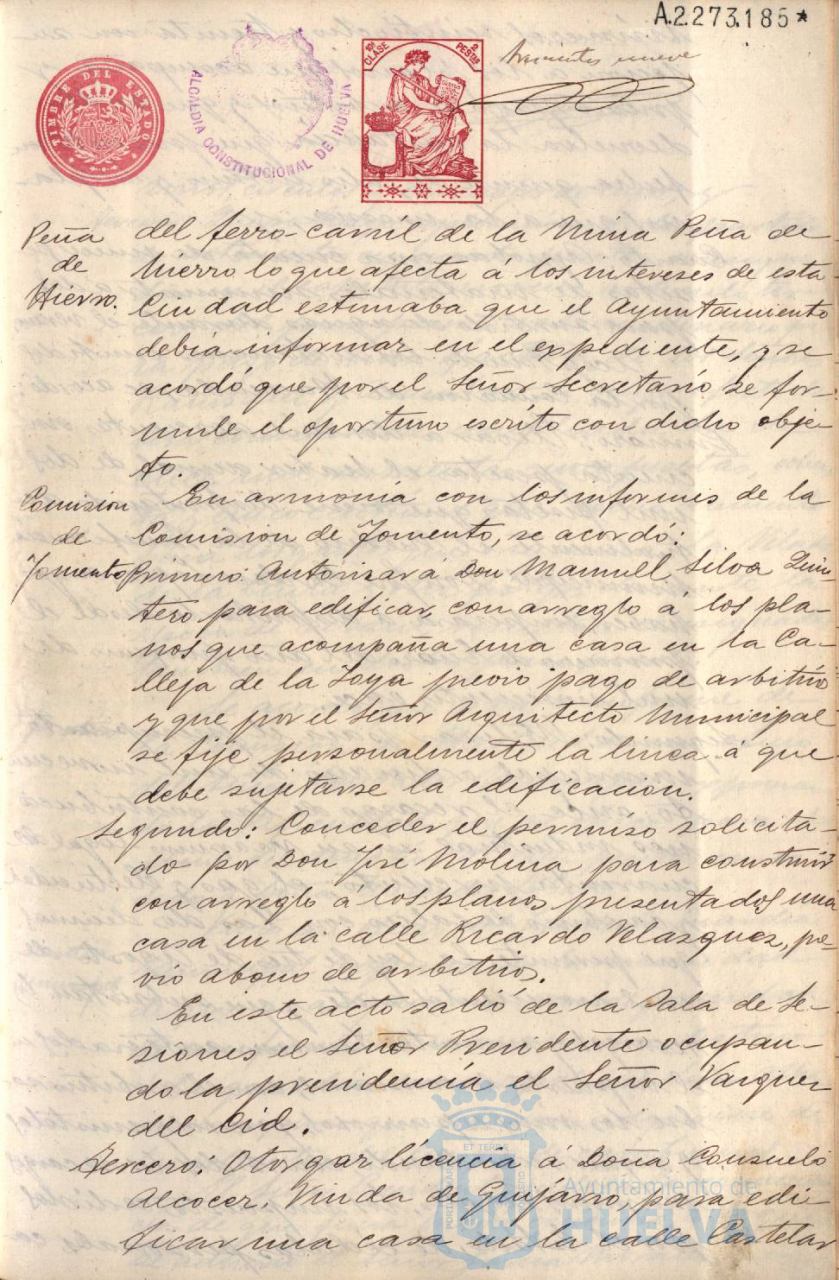 A.2.273.185*
TIMBRE DEL ESTADO
ALCALDIA CONSTITUCIONAL DE HUELVA
10ª CLASE
2 PESETAS
trescientos nueve
Peña
de
Hierro.
del ferro-carril de la Mina Peña de
hierro lo que afecta á los intereses de esta
Ciudad estimaba que el Ayuntamiento
debia informar en el expediente, y se
acordó que por el Señor Secretario se for-
mule el oportuno escrito con dicho obje-
to.
Comision
de
Fomento
En armonía con los informes de la
Comision de Fomento, se acordó:
Primero: Autorizar á Don Manuel Silva Quin
tero para edificar, con arreglo á los pla-
nos que acompaña una casa en la Ca-
lleja de la Joya previo pago de arbitrio
y que por el Señor Arquitecto Municipal
se fije personalmente la linea á que
debe sujetarse la edificacion.
Segundo: Conceder el permiso solicita-
do por Don José Molina para construir
con arreglo á los planos presentados una
casa en la calle Ricardo Velazquez, pre-
vio abono de arbitrios.
En este acto salió de la Sala de Se-
siones el Señor Presidente ocupan-
do la presidencia el Señor Vazquez
del Cid.
Tercero: Otorgar licencia á Doña Consuelo
Alcocer, Viuda de Guijarro, para edi
ficar una casa en la calle Castelar
Ayuntamiento de
HUELVA